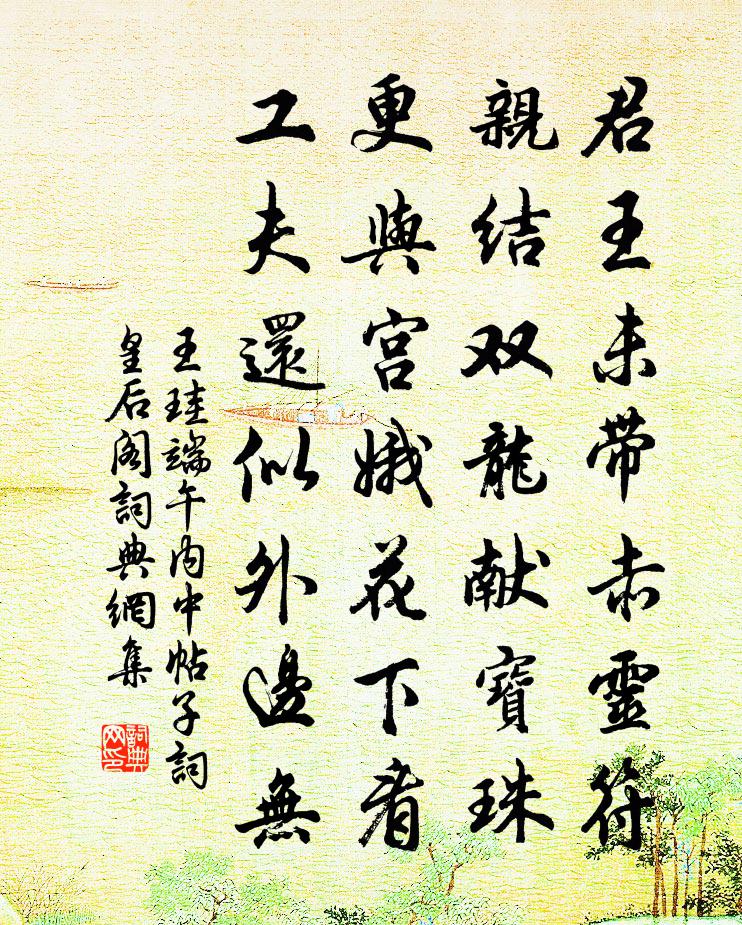 君王未带赤靈符
親結双龍献寶珠
更與宫娥花下看
工夫還似外邊無
王珪端午内中帖子詞
皇后阁詞典網集
詞典网印